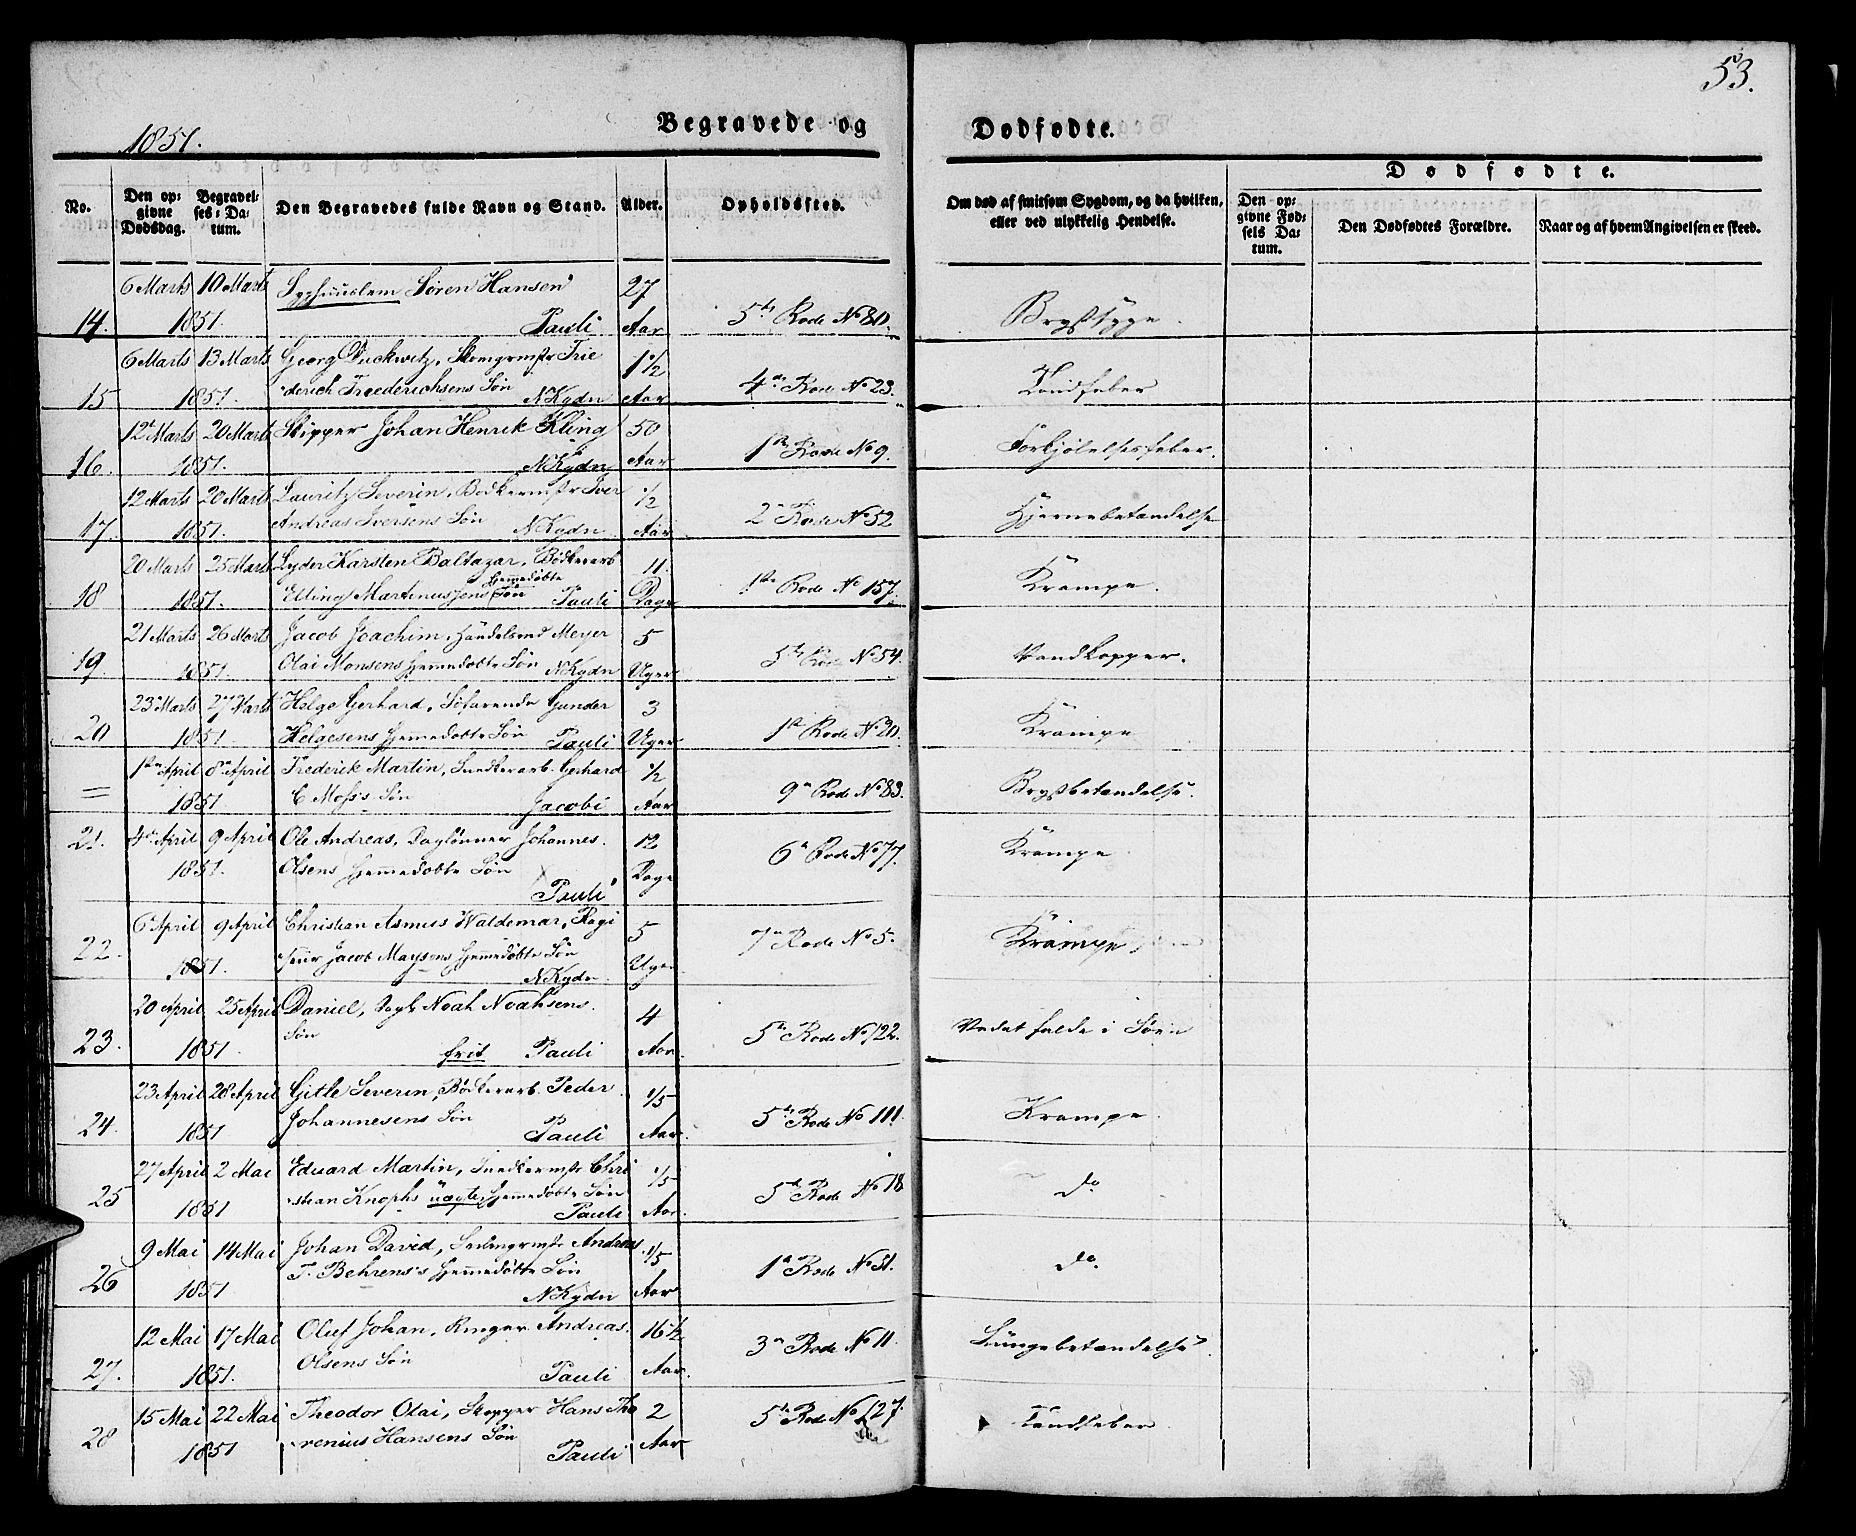 53.
1851.
Begravede og
Dødfødte.
No.
Den op-
givne
Dødsdag.
Begravel-
ses-Da-
tum.
Den Begravedes fulde Navn og Stand.
Alder.
Opholdssted.
Om død af smitsom Sygdom, og da hvilken,
eller ved ulykkelig Hendelse.
Dødfødte.
Den op-
givne Fød-
sels Da-
tum.
Den Dødfødtes Forældre.
Naar og af hvem Angivelsen er skeed.
6 Marts 10 Marts Søren Hansen 27
14. 1851. Pauli Aar 5te Rode No 80. Brystsyge.
6 Marts 13 Marts Georg Duckwitz, Skomgrmstr Frie 1 1/2
15 1851. derich Freederichsens Søn N Kydn Aar 4de Rode No 23. Tandfeber
12te Marts 20 Marts Skipper Johan Henrik Kling 50
16. 1851. N Kydn Aar 1ste Rode No 9. Forkjølelsesfeber.
12 Marts 20 Marts Lauritz Severin, Bødkermstr Iver 1/2
17. 1851. Andreas Iversens Søn N Kydn Aar 2n Rode No 52 Hjernebetændelse
20 Marts 25 Marts Lyder Karsten Baltazar, Bødkerarb 11
18 1851. Elling Martinussens hjemedøbte Søn Pauli Dage 1ste Rode No 157. Krampe.
21 Marts 26 Marts Jacob Joachim, Handelsmd Meyer 5
19. 1851. Olai Monsens hjemedøbte Søn N Kydn Uger 5te Rode No 54. Vandkopper.
23 Marts 27 Marts Helge Gerhard, Søfarende Gunder 3
20 1851. Helgesens hjemedøbte Søn Pauli Uger 1ste Rode No 30. Krampe
1ste April 8de April Frederik Martin, Snedkerarb. Gerhard 1/2
= 1851. C Moss's Søn Jacobi Aar 9n Rode No 83. Brystbetændelse.
21. 4de April 9 April Ole Andreas, Daglønner Johannes. 12
1851. Olsens hjemedøbte Søn Dage 6n Rode No 77. Krampe
Pauli
6 April 9 April Christian Asmus Waldemar, Ragi 5
22. 1851. seur Jacob Maysens hjemedøbte Søn Uger 7n Rode No 5. Krampe
N Kydn
20 April 25 April Daniel, Dagl. Noah Noahsens. 4
Søn
23. 1851. frit Pauli Aar. 5te Rode No 122. Vadet falde i Søen
23 April 28 April Gitle Severin, Bødkerarb. Peder 1/5
24. 1851. Johannesens Søn Pauli Aar. 5te Rode No 111. Krampe.
27 April 2 Mai Eduard Martin, Snedkermstr Chri 1/5
25 1851 stian Knophs uægte hjemedøbte Søn 5te Rode No 18 do
Pauli Aar.
9 Mai 14 Mai Johan David, Andreas 1/5
26 1851. T. Behrens's hjemedøbte Søn 1n Rode No 51. do.
N Kydn Aar.
12 Mai 17 Mai Oluf Johan, Ringer Andreas. 16 1/2
27. 1851. Olsens Søn Pauli Aar. 3n Rode No 11. Lungebetændelse.
15 Mai 22 Mai Theodor Olai, Skipper Hans Tho 2
28 1851 renius Hansens Søn Pauli Aar 5te Rode No 127. Tandfeber